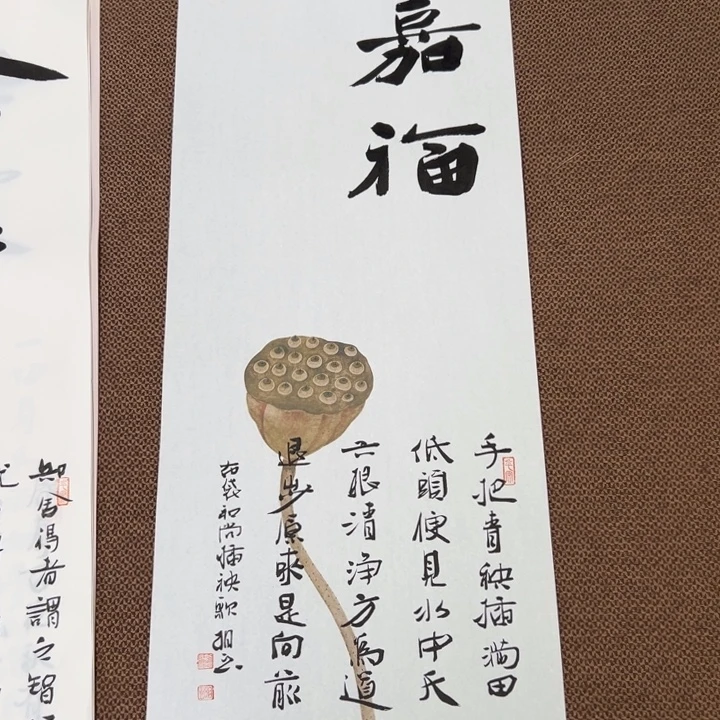 嘉福
手把青秧插滿田
低頭便見水中天
六根清淨方為道
退步原來是向前
布袋和尚插秧歌
卽舍得者謂之智